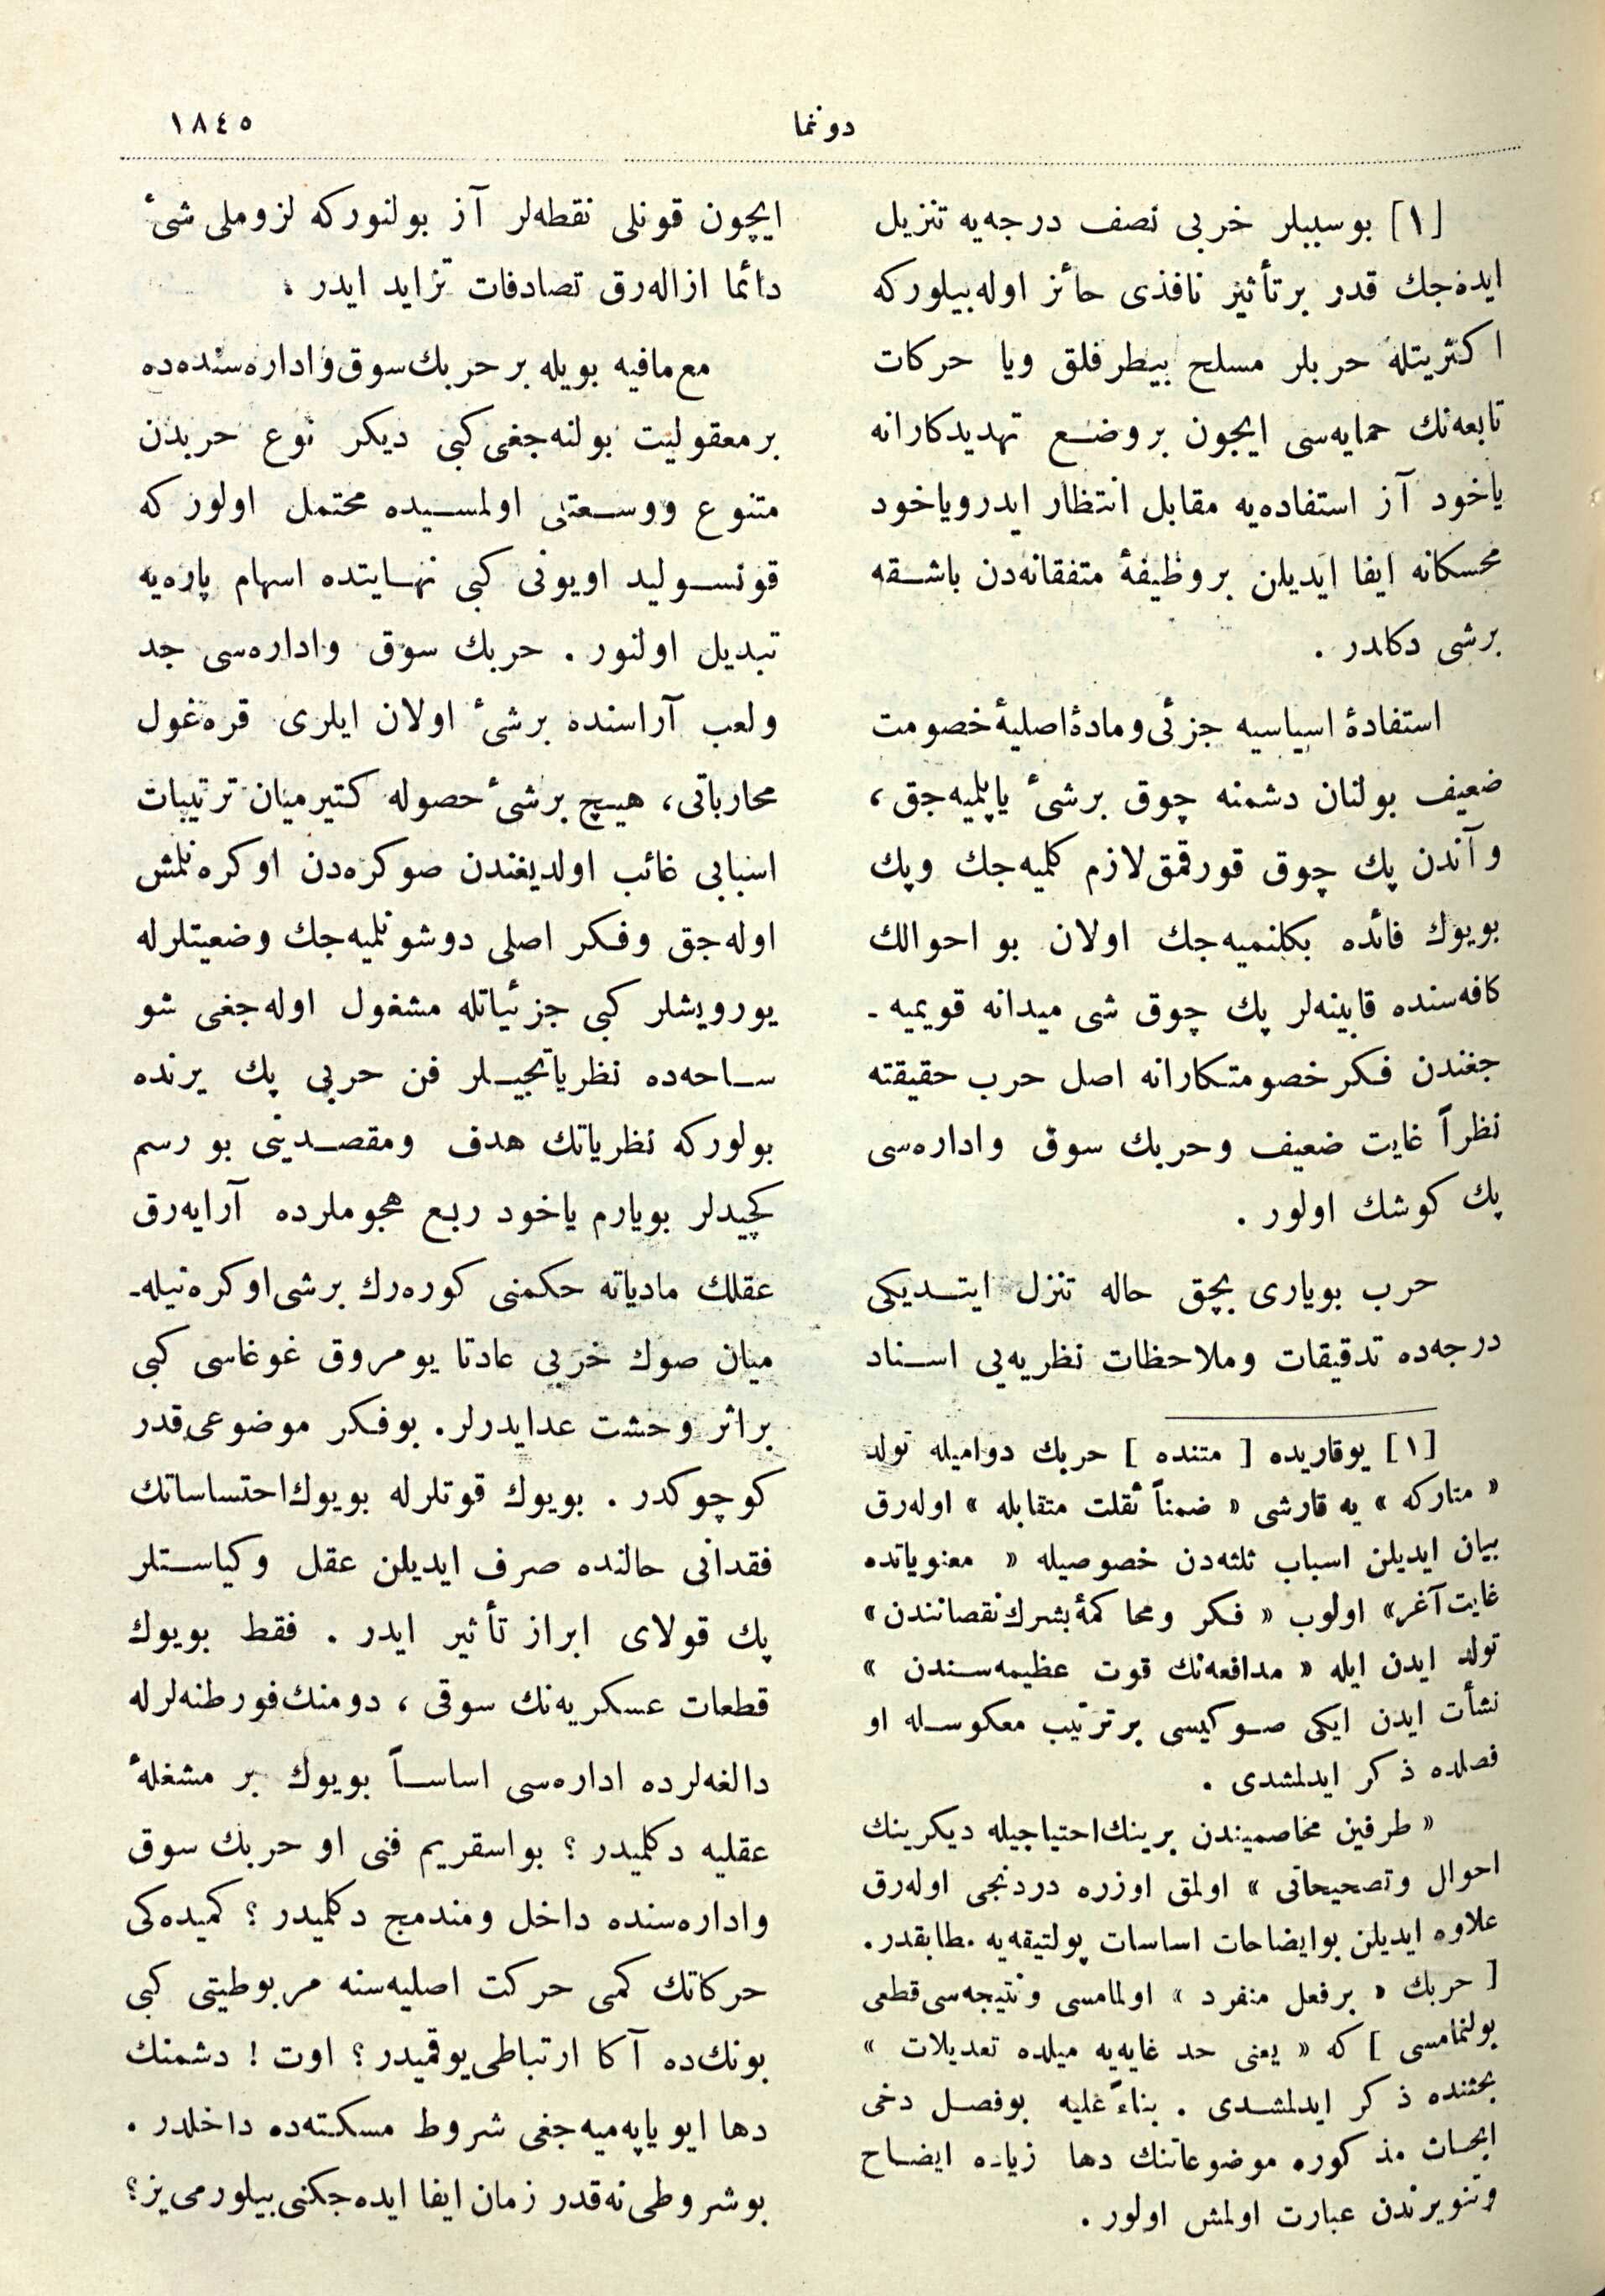 دوغما
١٨٤٥
[١] بوسببلر حربی نصف درجه‌یه تنزیل
ایده‌جك قدر برتأثیر نافذی حائز اوله‌بیلورکه
اکثریتله حربلر مسلح بیطرفلق ویا حرکات
تابعه‌نك حمایه‌سی ایچون بروضع تهدیدکارانه
یاخود آز استفاده‌یه مقابل انتظار ایدرویاخود
محسکانه ایفا ایدیلن بروظیفۀ متفقانه‌دن باشقه
برشی دکلدر .
استفادۀ اسیاسیه جزئی ومادۀ اصلیۀ خصومت
ضعیف بولنان دشمنه چوق برشیٔ یاپلمیه‌جق ،
وآندن پك چوق قورقمق لازم کلمیه‌جك وپك
بویوك فائده بکلنمیه‌جك اولان بو احوالك
کافه‌سنده قابینه‌لر پك چوق شی میدانه قویمیه -
جغندن فکر خصومتکارانه اصل حرب حقیقته
نظراً غایت ضعیف وحربك سوق واداره‌سی
پك کوشك اولور .
حرب بویاری بچق حاله تنزل ایتدیکی
درجه‌ده تدقیقات وملاحظات نظریه‌یی اسناد
[١] یوقاریده [ متنده ] حربك دوامیله تولد
« متارکه » یه قارشی « ضمناً ثقلت متقابله » اوله‌رق
بیان ایدیلن اسباب ثلثه‌دن خصوصیله « معنویاتده
غایت آغر» اولوب « فکر ومحاکمۀ بشرك نقصانندن »
تولد ایدن ایله « مدافعه‌نك قوت عظیمه‌سندن »
نشأت ایدن ایکی صوکیسی برترتیب معکوسله او
فصلده ذکر ایدلمشدی .
« طرفین مخاصمیندن برینك احتیاجیله دیکرینك
احوال وتصحیحاتی » اولمق اوزره دردنجی اوله‌رق
علاوه ایدیلن بوایضاحات اساسات پولتیقه‌یه مطابقدر.
[ حربك « برفعل منفرد » اولمامسی ونتیجه‌سی قطعی
بولنمامسی ] که « یعنی حد غایه‌یه میلده تعدیلات »
بحثنده ذکر ایدلمشدی . بناءً علیه بوفصل دخی
ابحاث مذکوره موضوعاتنك دها زیاده ایضاح
وتنویرندن عبارت اولمش اولور .
ایچون قونلی نقطه‌لر آز بولنورکه لزوملی شیٔ
دائما ازاله‌رق تصادفات تزاید ایدر .
مع‌مافیه بویله برحربك سوق واداره‌سنده‌ده
برمعقولیت بولنه‌جغی کبی دیکر نوع حربدن
متنوع ووسعتی اولمسیده محتمل اولورکه
قونسولید اویونی کبی نهایتده اسهام پاره‌یه
تبدیل اولنور . حربك سوق واداره‌سی جد
ولعب آراسنده برشیٔ اولان ایلری قره‌غول
محارباتی، هیچ برشیٔ حصوله کتیرمیان ترتیبات
اسبابی غائب اولدیغندن صوکره‌دن اوکره‌نلمش
اوله‌جق وفکر اصلی دوشونلمیه‌جك وضعیتلرله
یورویشلر کبی جزئیاتله مشغول اوله‌جغی شو
ساحه‌ده نظریاتجیلر فن حربی پك یرنده
بولورکه نظریاتك هدف ومقصدینی بو رسم
کچیدلر بویارم یاخود ربع هجوملرده آرایه‌رق
عقلك مادیاته حکمنی کوره‌رك برشی اوکره‌نیله-
میان صوك حربی عادتا یومروق غوغاسی کبی
براثر وحشت عدایدرلر. بوفکر موضوعی قدر
کوچوکدر . بویوك قوتلرله بویوك احتساساتك
فقدانی حالنده صرف ایدیلن عقل وکیاستلر
پك قولای ابراز تأثیر ایدر . فقط بویوك
قطعات عسکریه‌نك سوقی ، دومنك فورطنه‌لرله
دالغه‌لرده اداره‌سی اساساً بویوك بر مشغلۀ
عقلیه دکلمیدر ؟ بواسقریم فنی او حربك سوق
واداره‌سنده داخل ومندمج دکلمیدر ؟ کمیده‌کی
حرکاتك کمی حرکت اصلیه‌سنه مربوطیتی کبی
بونك‌ده آکا ارتباطی یوقمیدر ؟ اوت ! دشمنك
دها ایو یاپه‌میه‌جغی شروط مسکته‌ده داخلدر .
بوشروطی نه‌قدر زمان ایفا ایده‌جکنی بیلورمی‌یز؟